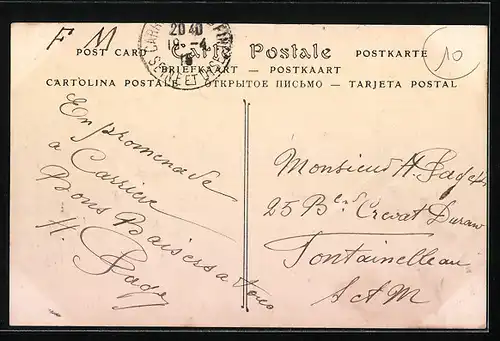 F M
POST CARD Carte Postale POSTKARTE
BRIEFKAART — POSTKAART
CARTOLINA POSTALE ОТКРЫТОЕ ПИСЬМО — TARJETA POSTAL
20 40
18 -4
SEINE ET OISE
10
En promenade
a Carrière
Bons Baisers a tous
H. Page
Monsieur H. Page
25 Bend Crevat Durant
Fontainelleau
S et M